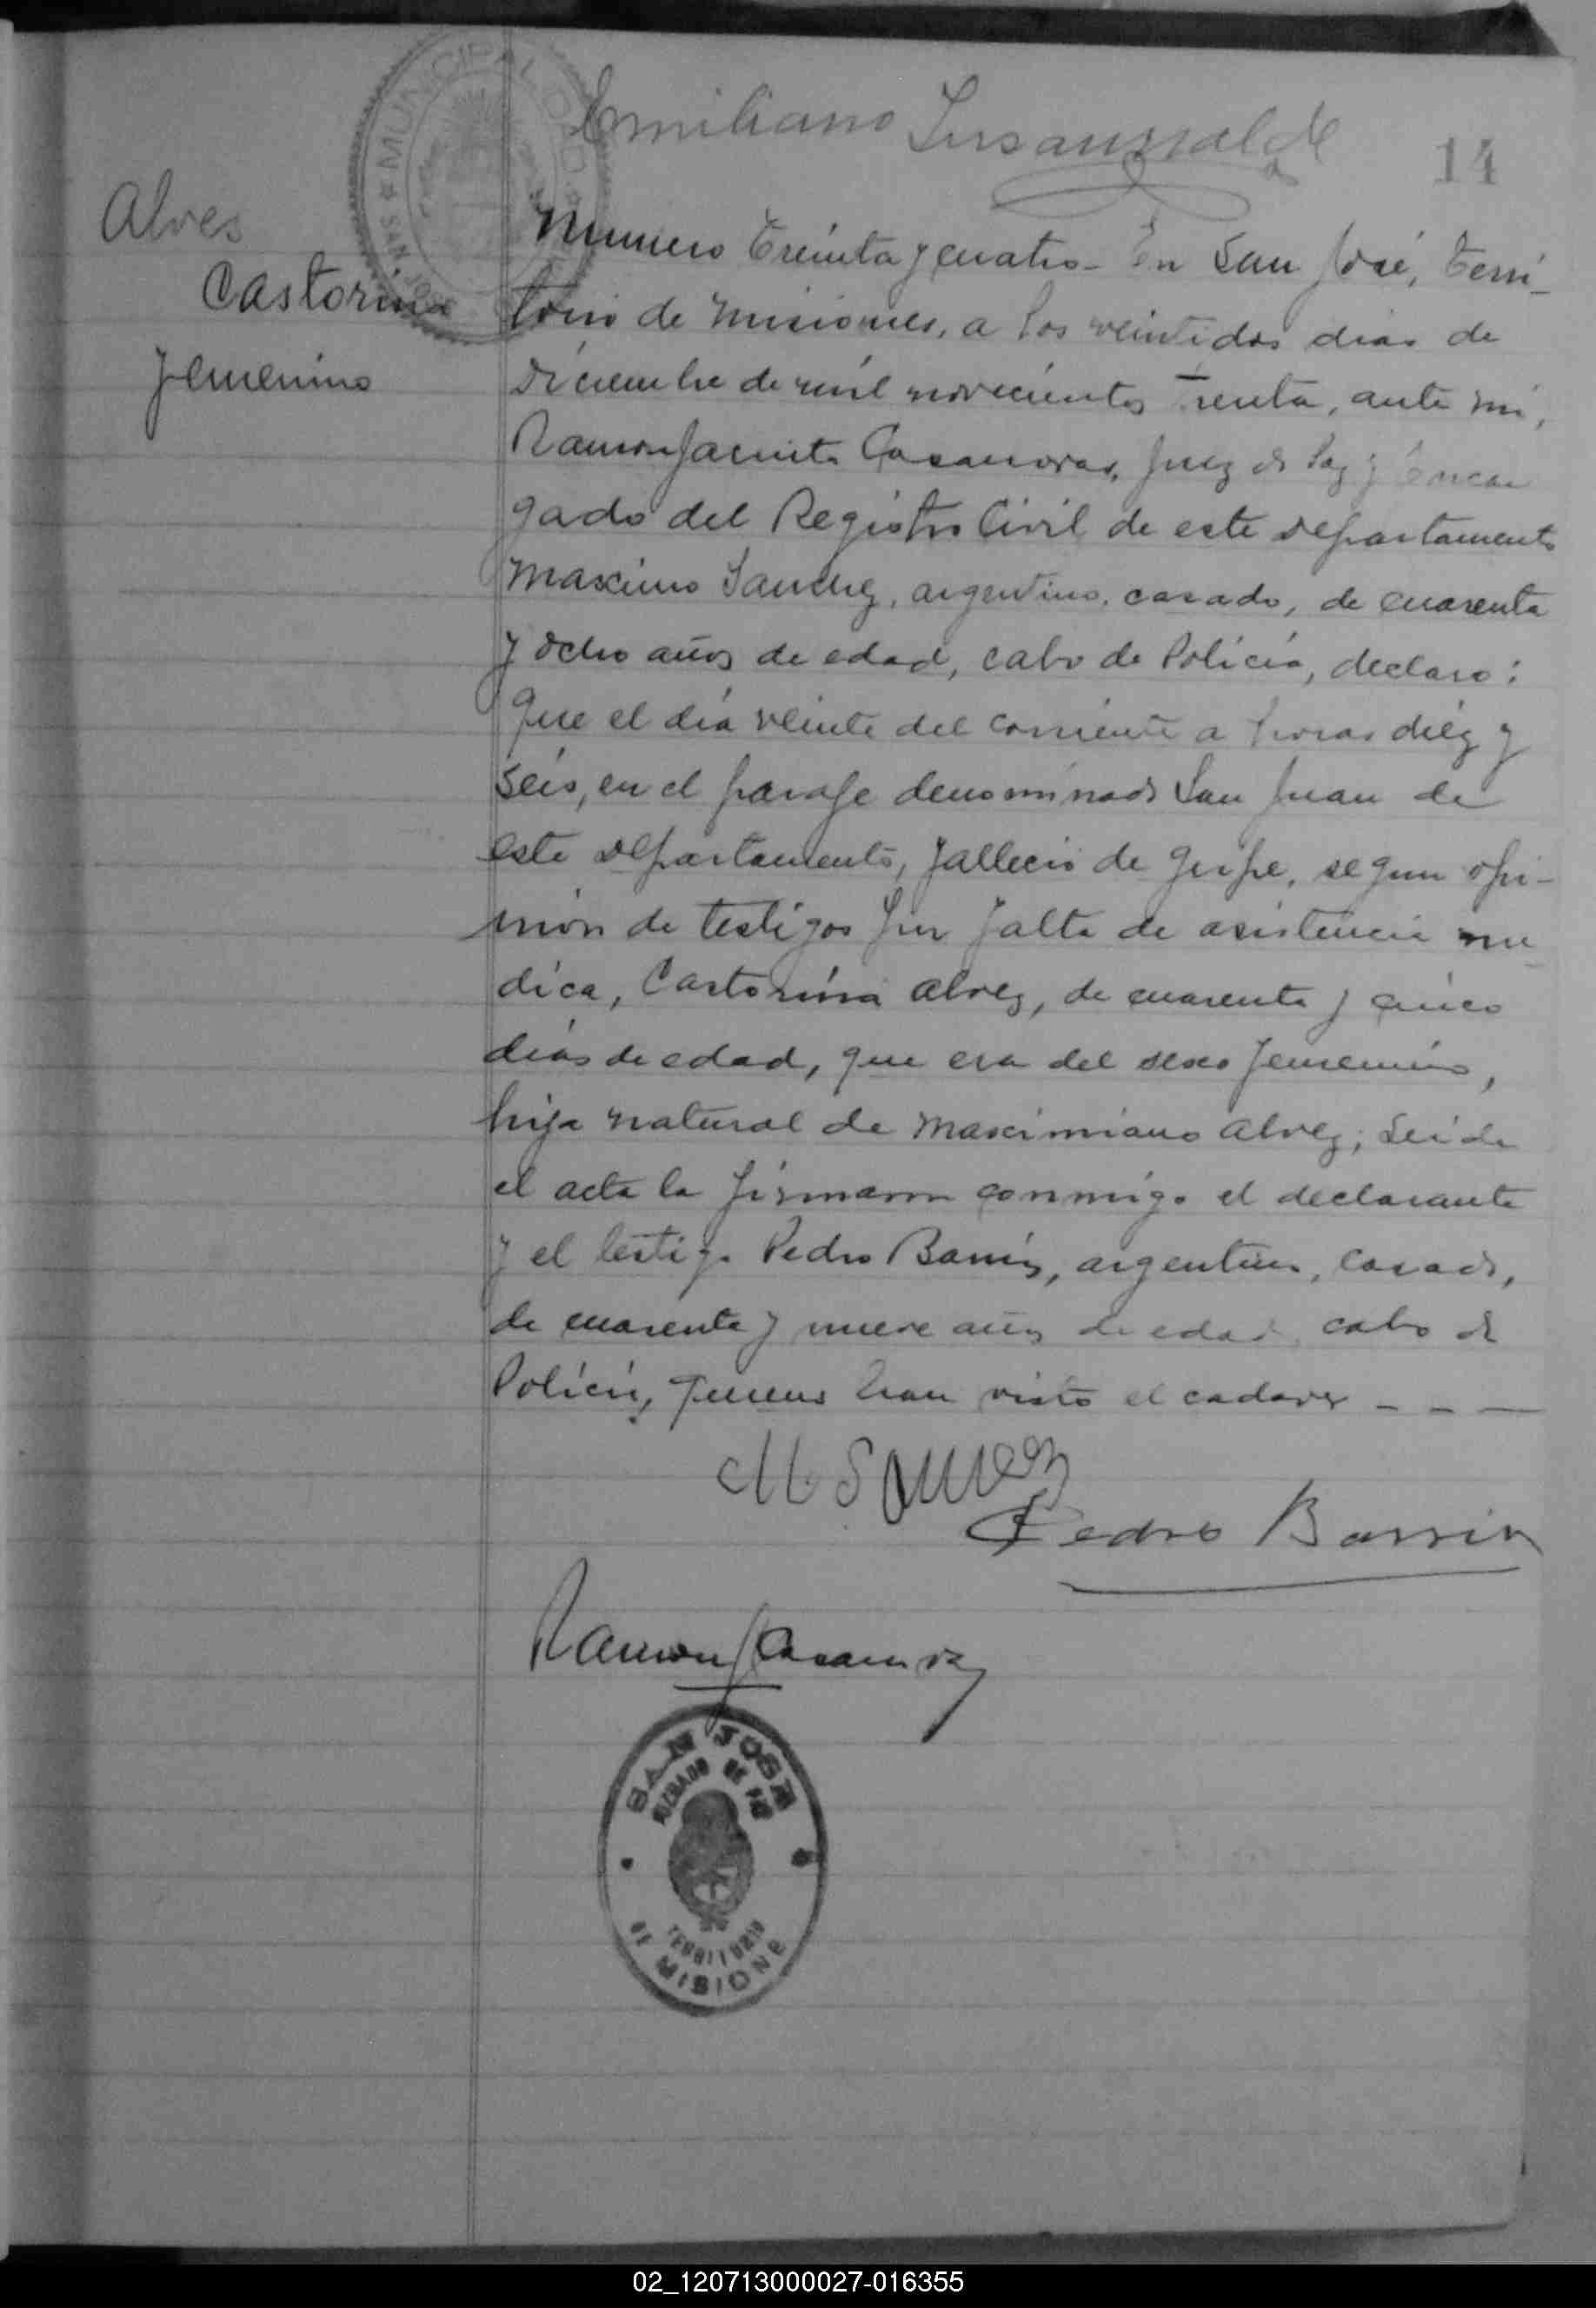 Emiliano
14
MUNICIPAL
SAN JOSE
Alves
Castorina
Femenino
Numero treinta y cuatro - En San José, Terri-
torio de Misiones, a los veintidos dias de
Diciembre de mil novecientos Treinta, ante mi,
Ramon Jacinto Casanovas, Juez de Paz y Encar
gado del Registro Civil de este Departamento
Maximo Sanchez, argentino, casado, de cuarenta
y ocho años de edad, cabo de Policia, declaro:
Que el dia veinte del corriente a horas diez y
seis, en el paraje denominado San Juan de
este Departamento, fallecio de gripe, segun opi-
nion de testigos por falta de asistencia me
dica, Castorina Alvez, de cuarenta y cinco
dias de edad, que era del sexo femenino,
hija natural de Maximiano Alvez; Leida
el acta la firmaron conmigo el declarante
y el testigo Pedro Barrin, argentino, casado,
de cuarenta y nueve años de edad, cabo de
Policia, quienes han visto el cadaver - - -
M Sanchez
Pedro Barrin
Ramon J Casanovas
SAN JOSE
JUZGADO DE PAZ
TERRITORIO
DE MISIONE
02_120713000027-016355